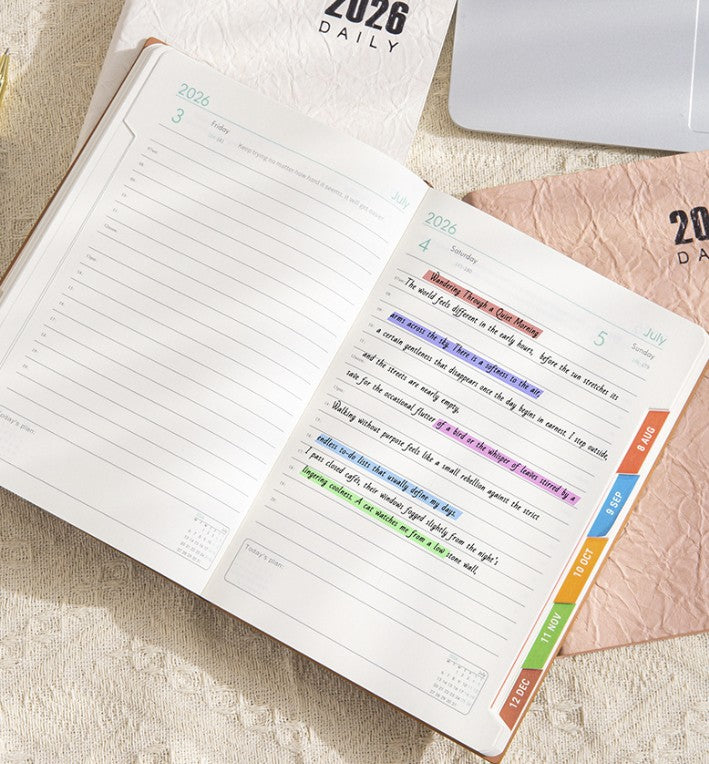 2026
DAILY
2026
3
Friday
Keep trying no matter how hard it seems, it will get easier.
July
Today's plan:
2026
4
Saturday
July
5
Sunday
Wandering Through a Quiet Morning
The world feels different in the early hours, before the sun stretches its
arms across the sky. There is a softness to the air,
a certain gentleness that disappears once the day begins in earnest. I step outside,
and the streets are nearly empty,
save for the occasional flutter of a bird or the whisper of leaves stirred by a
Walking without purpose feels like a small rebellion against the strict
endless to-do lists that usually define my days.
I pass closed cafés, their windows fogged slightly from the night's
lingering coolness. A cat watches me from a low stone wall,
Today's plan:
8 AUG
9 SEP
10 OCT
11 NOV
12 DEC
20
DA